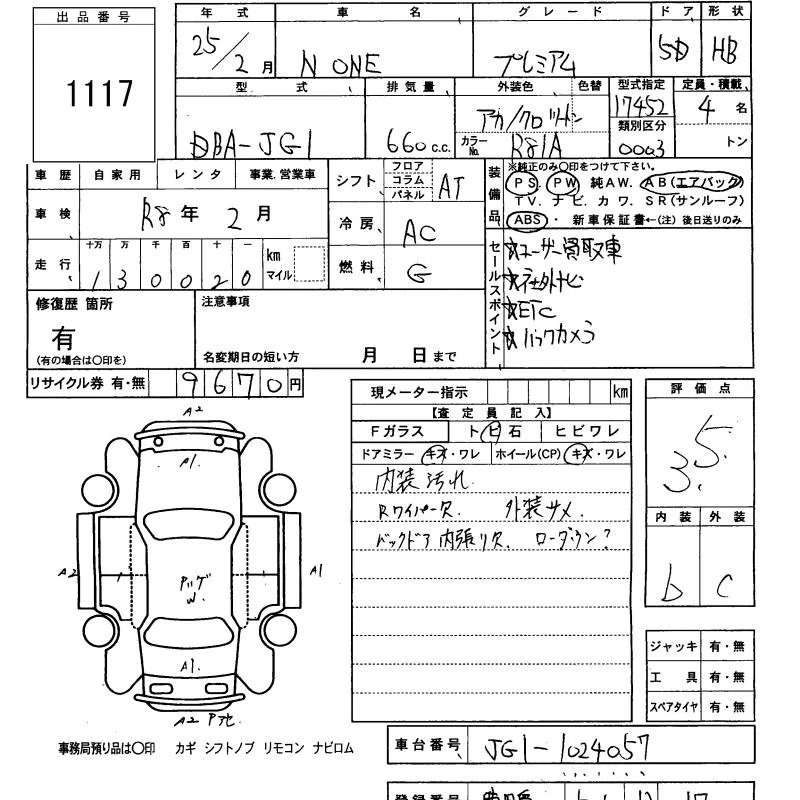 出品番号
1117
年式 車名 グレード ドア 形状
25/2月 N ONE プレミアム 5D HB
型式 排気量 外装色 色替 型式指定 定員・積載
DBA-JG1 660c.c. アカ/クロツートン 17452 4名
カラーNo. R81A 類別区分 0003 トン
車歴 自家用 レンタ 事業.営業車
車検 R8年 2月
走行 十万 万 千 百 十 一 km マイル
130020
シフト フロア コラム パネル AT
冷房 AC
燃料 G
装備品 ※純正のみ〇印をつけて下さい。
PS. PW 純AW. AB(エアバック)
TV. ナビ. カワ. SR(サンルーフ)
ABS・ 新車保証書←(注)後日送りのみ
セールスポイント
☆ユーザー買取車
☆社外ナビ
☆ETC
☆バックカメラ
修復歴 箇所
有
(有の場合は〇印を)
注意事項
名変期日の短い方 月 日まで
リサイクル券 有・無 9670円
現メーター指示 km
【査定員記入】
Fガラス トビ石 ヒビワレ
ドアミラー キズ・ワレ ホイール(CP) キズ・ワレ
内装汚れ
Rワイパー欠 外装サメ.
バックドア内張り欠. ローダウン?
評価点
3.5
内装 外装
b c
A2
A1.
A2
A1
W.
A1.
A2
ジャッキ 有・無
工具 有・無
スペアタイヤ 有・無
事務局預り品は〇印 カギ シフトノブ リモコン ナビロム
車台番号 JG1-1024057